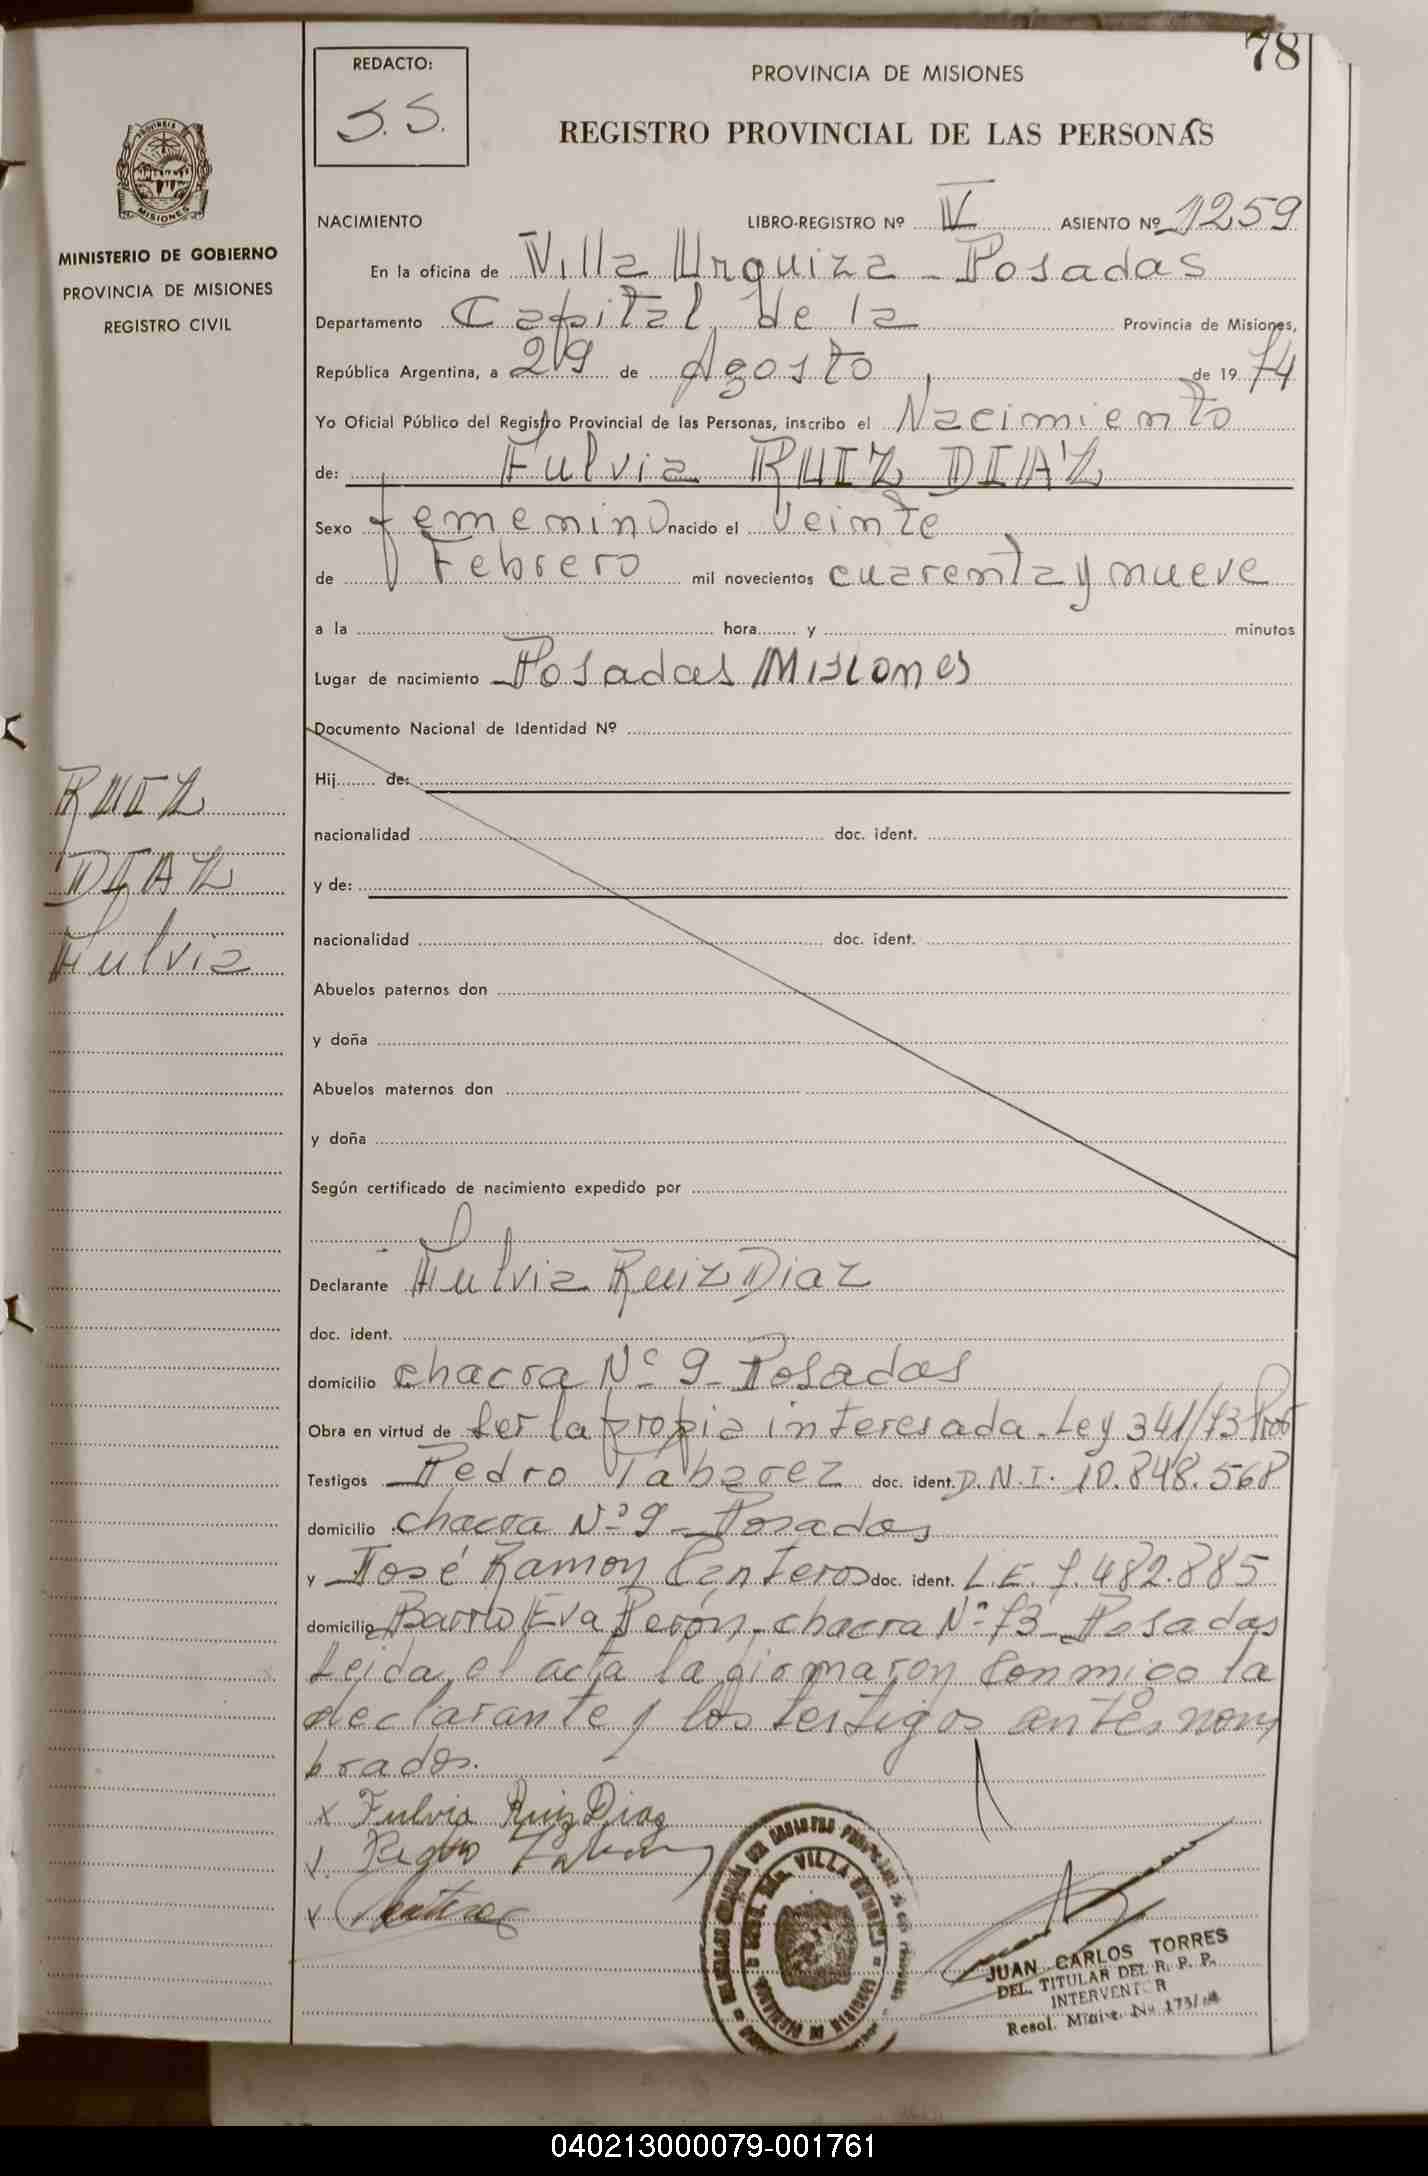 78
REDACTO:
S.S.
PROVINCIA DE MISIONES
REGISTRO PROVINCIAL DE LAS PERSONAS
PROVINCIA
MISIONES
MINISTERIO DE GOBIERNO
PROVINCIA DE MISIONES
REGISTRO CIVIL
NACIMIENTO LIBRO-REGISTRO Nº IV ASIENTO Nº 1259
En la oficina de Villa Urquiza - Posadas
Departamento Capital de la Provincia de Misiones,
República Argentina, a 29 de Agosto de 19 74
Yo Oficial Público del Registro Provincial de las Personas, inscribo el Nacimiento
de: Fulvia RUIZ DIAZ
Sexo femenino nacido el Veinte
de Febrero mil novecientos cuarenta y nueve
a la hora y minutos
Lugar de nacimiento Posadas Misiones
Documento Nacional de Identidad Nº
Hij de:
nacionalidad doc. ident.
y de:
nacionalidad doc. ident.
Abuelos paternos don
y doña
Abuelos maternos don
y doña
Según certificado de nacimiento expedido por
RUIZ
DIAZ
Fulvia
Declarante Fulvia Ruiz Diaz
doc. ident.
domicilio chacra Nº 9 - Posadas
Obra en virtud de ser la propia interesada. Ley 341/73
Testigos Pedro Tabarez doc. ident. D.N.I. 10.848.568
domicilio chacra Nº 9 - Posadas
y José Ramon Centeros doc. ident. L.E. 7.482.885
domicilio Barrio Eva Perón - chacra Nº 73 - Posadas
Leida el acta la firmaron conmigo la
declarante y los testigos antes nom
brados.
x Fulvia Ruiz Diaz
VILLA URQUIZA
JUAN CARLOS TORRES
DEL. TITULAR DEL R. P. P.
INTERVENTOR
Resol. Minist. Nº 173/
040213000079-001761